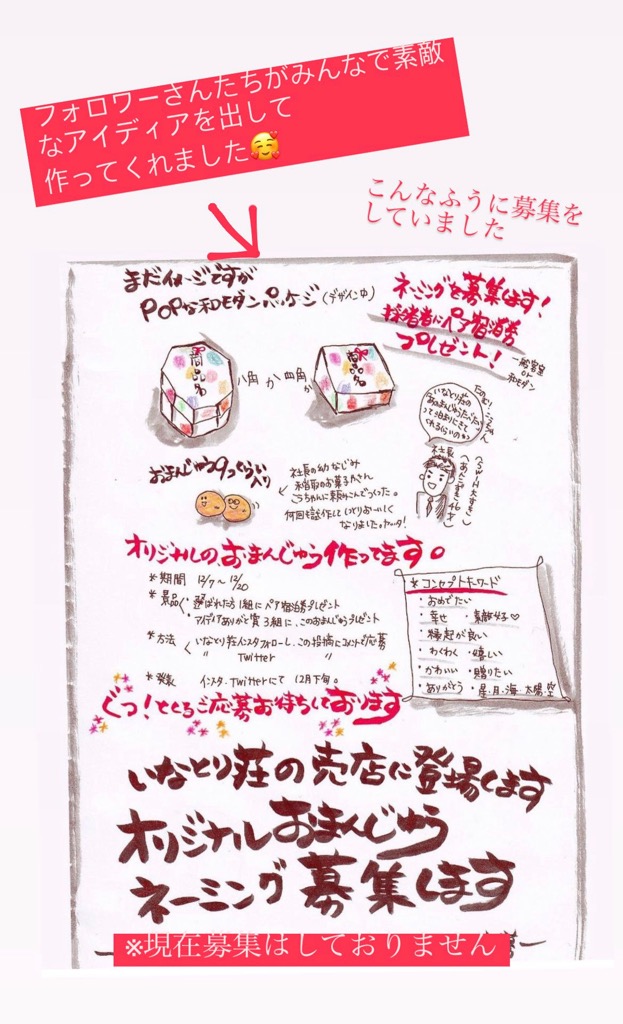 フォロワーさんたちがみんなで素敵
なアイディアを出して
作ってくれました🥰
こんなふうに募集を
していました
まだイメージですが
POPな和モダンパッケージ(デザイン中)
ネーミングを募集します!
採者にペア宿泊券
プレゼント!
一般客室
or
和モダン
商品名
八角 か 四角 か
商品名
いなとり荘の
社長
おまんじゅう9つくらい
入り
社長の幼なじみ
お菓子屋さん
こうちゃんに頼みこんでつくった。
何回も試作してしっとりおいしく
なりました。ヤッタ!
オリジナルの、おまんじゅう作ってます。
*期間 12/7~12/20
*景品 選ばれた方1組にペア宿泊券プレゼント
アイディアありがと賞3組に、このおまんじゅうプレゼント
*方法 いなとり荘インスタフォローし、この投稿にコメントで応募
〃 Twitter 〃
*発表 インスタ・Twitterにて 12月下旬。
*コンセプトキーワード
・おめでたい
・幸せ ・素敵♡
・縁起が良い
・わくわく ・嬉しい
・かわいい ・贈りたい
・ありがとう ・星・月・海・太陽・空
ぐっ!とくるご応募お待ちしております
いなとり荘の売店に登場します
オリジナルおまんじゅう
ネーミング募集します
※現在募集はしておりません